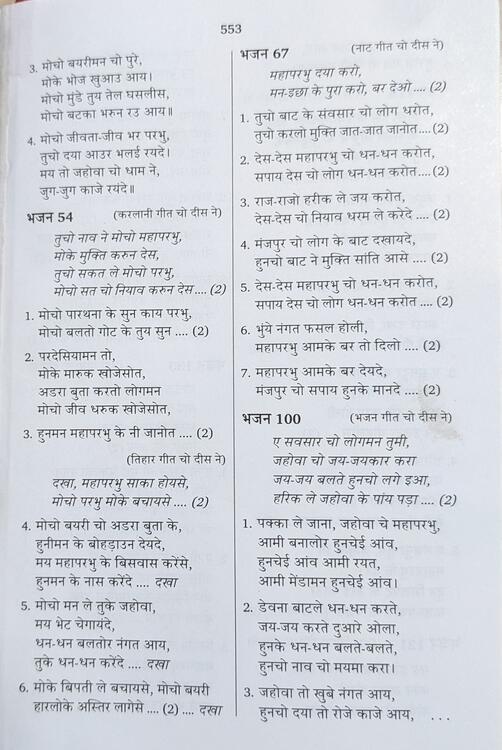 553
3. मोचो बयरीमन चो पुरे,
मोके भोज खुआउ आय।
मोचो मुंडे तुय तेल घसलीस,
मोचो बटका भरुन रउ आय॥
4. मोचो जीवता-जीव भर परभु,
तुचो दया आउर भलई रयदे।
मय तो जहोवा चो धाम ने,
जुग-जुग काजे रयंदे॥
भजन 54 (करलानी गीत चो दीस ने)
तुचो नाव ने मोचो महापरभु,
मोके मुक्ति करुन देस,
तुचो सकत ले मोचो परभु,
मोचो सत चो नियाव करुन देस .... (2)
1. मोचो पारथना के सुन काय परभु,
मोचो बलतो गोट के तुय सुन .... (2)
2. परदेसियामन तो,
मोके मारुक खोजेसोत,
अडरा बुता करतो लोगमन
मोचो जीव धरुक खोजेसोत,
3. हुनमन महापरभु के नी जानोत .... (2)
(तिहार गीत चो दीस ने)
दखा, महापरभु साका होयसे,
मोचो परभु मोके बचायसे .... (2)
4. मोचो बयरी चो अडरा बुता के,
हुनीमन के बोहड़ाउन देयदे,
मय महापरभु के बिसवास करेंसे,
हुनमन के नास करेंदे .... दखा
5. मोचो मन ले तुके जहोवा,
मय भेट चेगायंदे,
धन-धन बलतोर नंगत आय,
तुके धन-धन करेंदे .... दखा
6. मोके बिपती ले बचायसे, मोचो बयरी
हारलोके अस्तिर लागेसे .... (2) .... दखा
भजन 67 (नाट गीत चो दीस ने)
महापरभु दया करो,
मन-इछा के पुरा करो, बर देओ .... (2)
1. तुचो बाट के संवसार चो लोग धरोत,
तुचो करलो मुक्ति जात-जात जानोत .... (2)
2. देस-देस महापरभु चो धन-धन करोत,
सपाय देस चो लोग धन-धन करोत .... (2)
3. राज-राजो हरीक ले जय करोत,
देस-देस चो नियाव धरम ले करेदे .... (2)
4. मंजपुर चो लोग के बाट दखायदे,
हुनचो बाट ने मुक्ति सांति आसे .... (2)
5. देस-देस महापरभु चो धन-धन करोत,
सपाय देस चो लोग धन-धन करोत .... (2)
6. भुंये नंगत फसल होली,
महापरभु आमके बर तो दिलो .... (2)
7. महापरभु आमके बर देयदे,
मंजपुर चो सपाय हुनके मानदे .... (2)
भजन 100 (भजन गीत चो दीस ने)
ए सवसार चो लोगमन तुमी,
जहोवा चो जय-जयकार करा
जय-जय बलते हुनचो लगे इआ,
हरिक ले जहोवा के पांय पड़ा .... (2)
1. पक्का ले जाना, जहोवा चे महापरभु,
आमी बनालोर हुनचेई आंव,
हुनचेई आंव आमी रयत,
आमी मेंडामन हुनचेई आंव।
2. डेवना बाटले धन-धन करते,
जय-जय करते दुआरे ओला,
हुनके धन-धन बलते-बलते,
हुनचो नाव चो मयमा करा।
3. जहोवा तो खुबे नंगत आय,
हुनचो दया तो रोजे काजे आय, ...